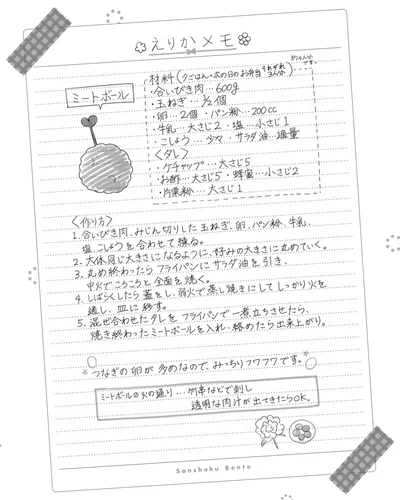 えりかメモ
ミートボール
約4人分です。
材料(夕ごはん・次の日のお弁当それぞれ2人分)
・合いびき肉…600g
・玉ねぎ…1/2個
・卵…2個・パン粉…200cc
・牛乳…大さじ2・塩…小さじ1
・こしょう…少々・サラダ油…適量
<タレ>
・ケチャップ…大さじ5
・お酢…大さじ5・蜂蜜…小さじ2
・片栗粉…大さじ1
<作り方>
1.合いびき肉、みじん切りした玉ねぎ、卵、パン粉、牛乳、
塩、こしょうを合わせて練る。
2.大体同じ大きさになるように、好みの大きさに丸めていく。
3.丸め終わったらフライパンにサラダ油を引き、
中火でころころと全面を焼く。
4.しばらくしたら蓋をし、弱火で蒸し焼きにしてしっかり火を
通し、皿に移す。
5.混ぜ合わせたタレをフライパンで一煮立ちさせたら、
焼き終わったミートボールを入れ、絡めたら出来上がり。
つなぎの卵が多めなので、みっちりフワフワです。
ミートボールの火の通り…竹串などで刺し
透明な肉汁が出てきたらOK。
Sanshoku Bento